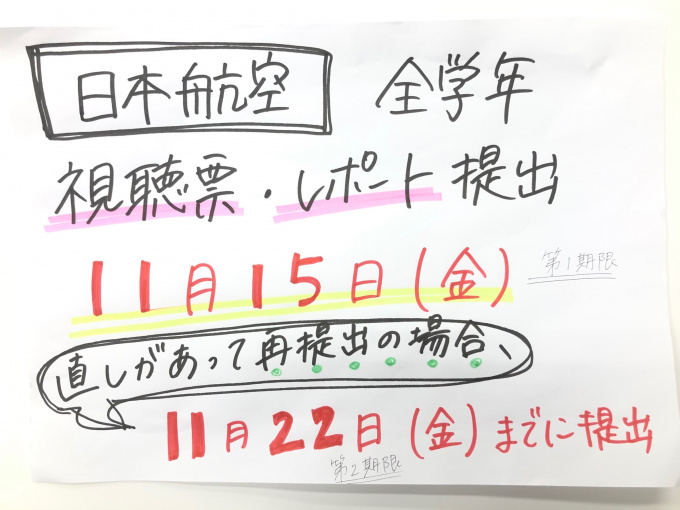 日本航空 全学年
視聴票・レポート提出
11月15日(金) 第1期限
直しがあって再提出の場合、
11月22日(金)までに提出
第2期限